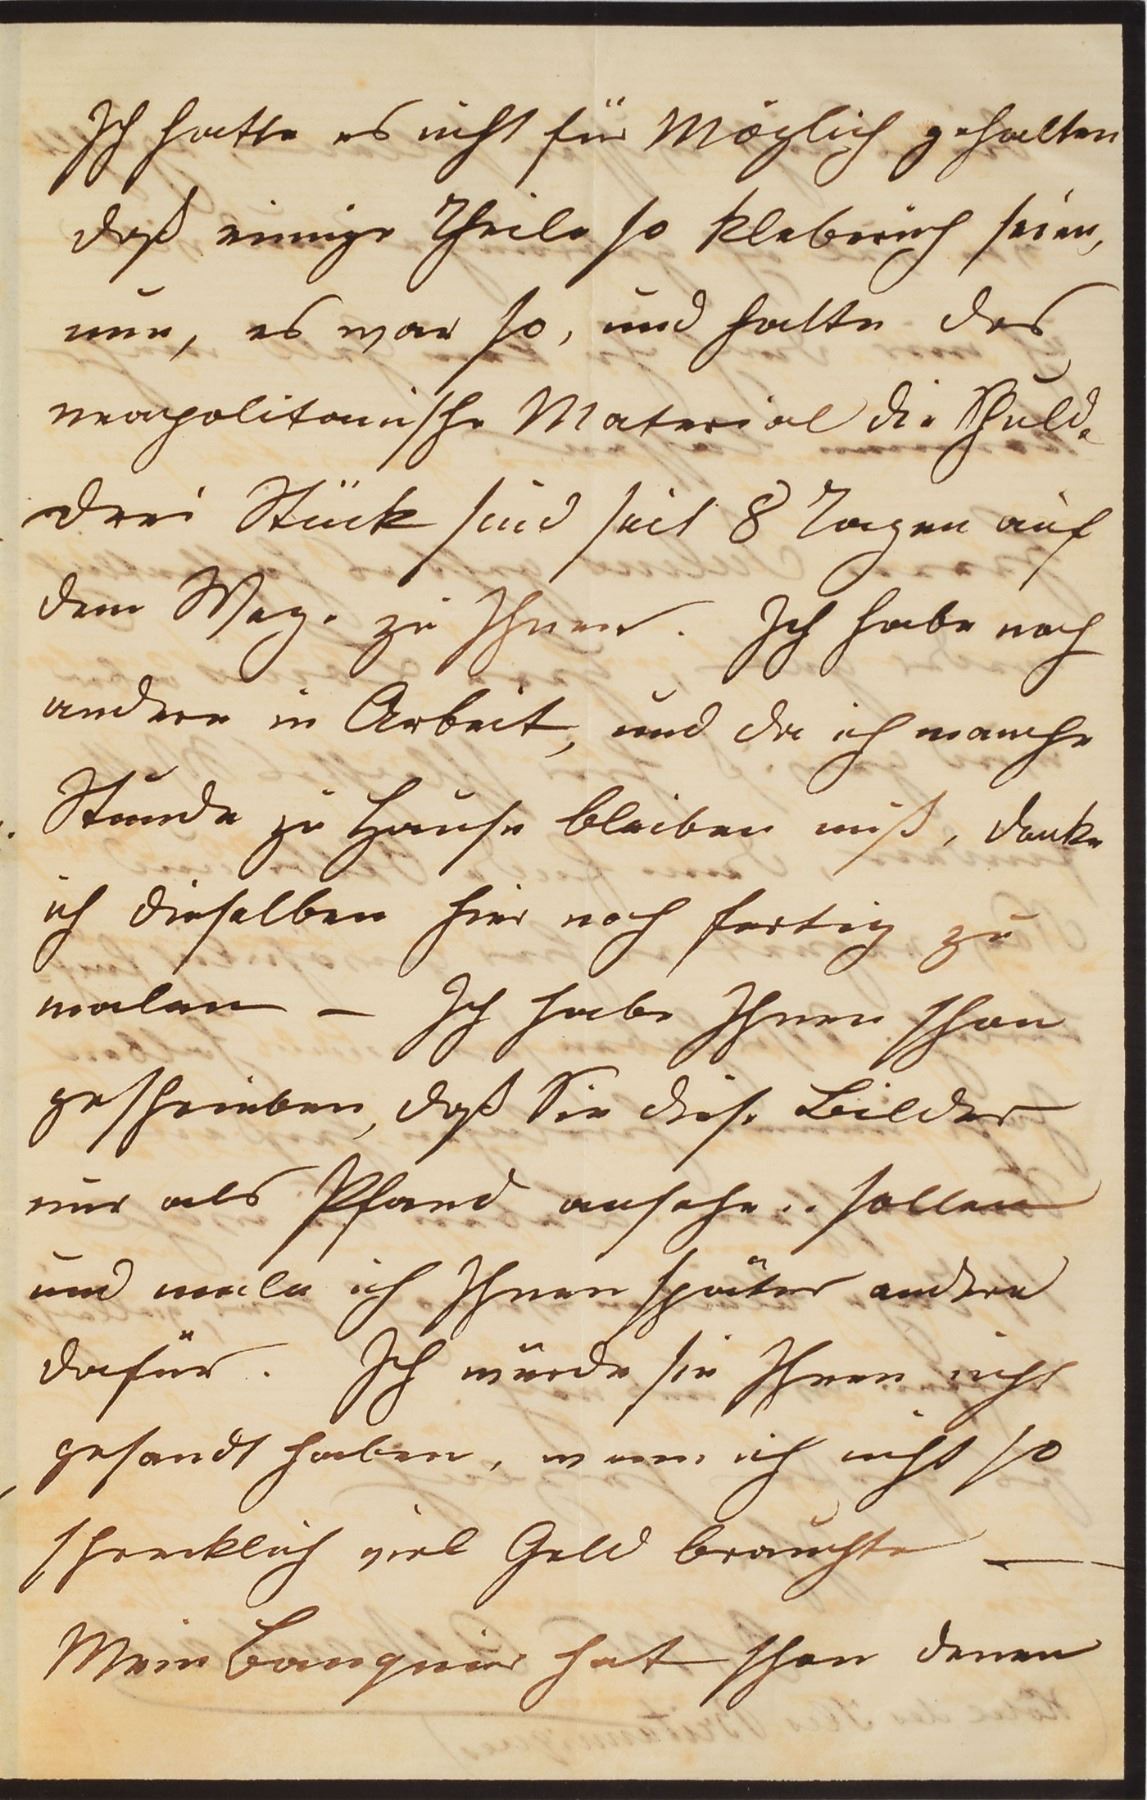 Ich hatte es nicht für Möglich gehalten
daß einige Theile so kleberich seien,
nun, es war so, und halte das
neapolitanische Material die Schuld.
drei Stück sind seit 8 Tagen auf
dem Wege zu Ihnen. Ich habe noch
andere in Arbeit, und da ich manche
Stunde zu Hause bleiben muß, denke
ich dieselben hier noch fertig zu
malen — Ich habe Ihnen schon
geschrieben, daß Sie diese Bilder
nur als Pfand ansehen sollen
und male ich Ihnen später andere
dafür. Ich würde sie Ihnen nicht
gesandt haben, wenn ich nicht so
schrecklich viel Geld brauchte —
Mein Banquier hat schon denen